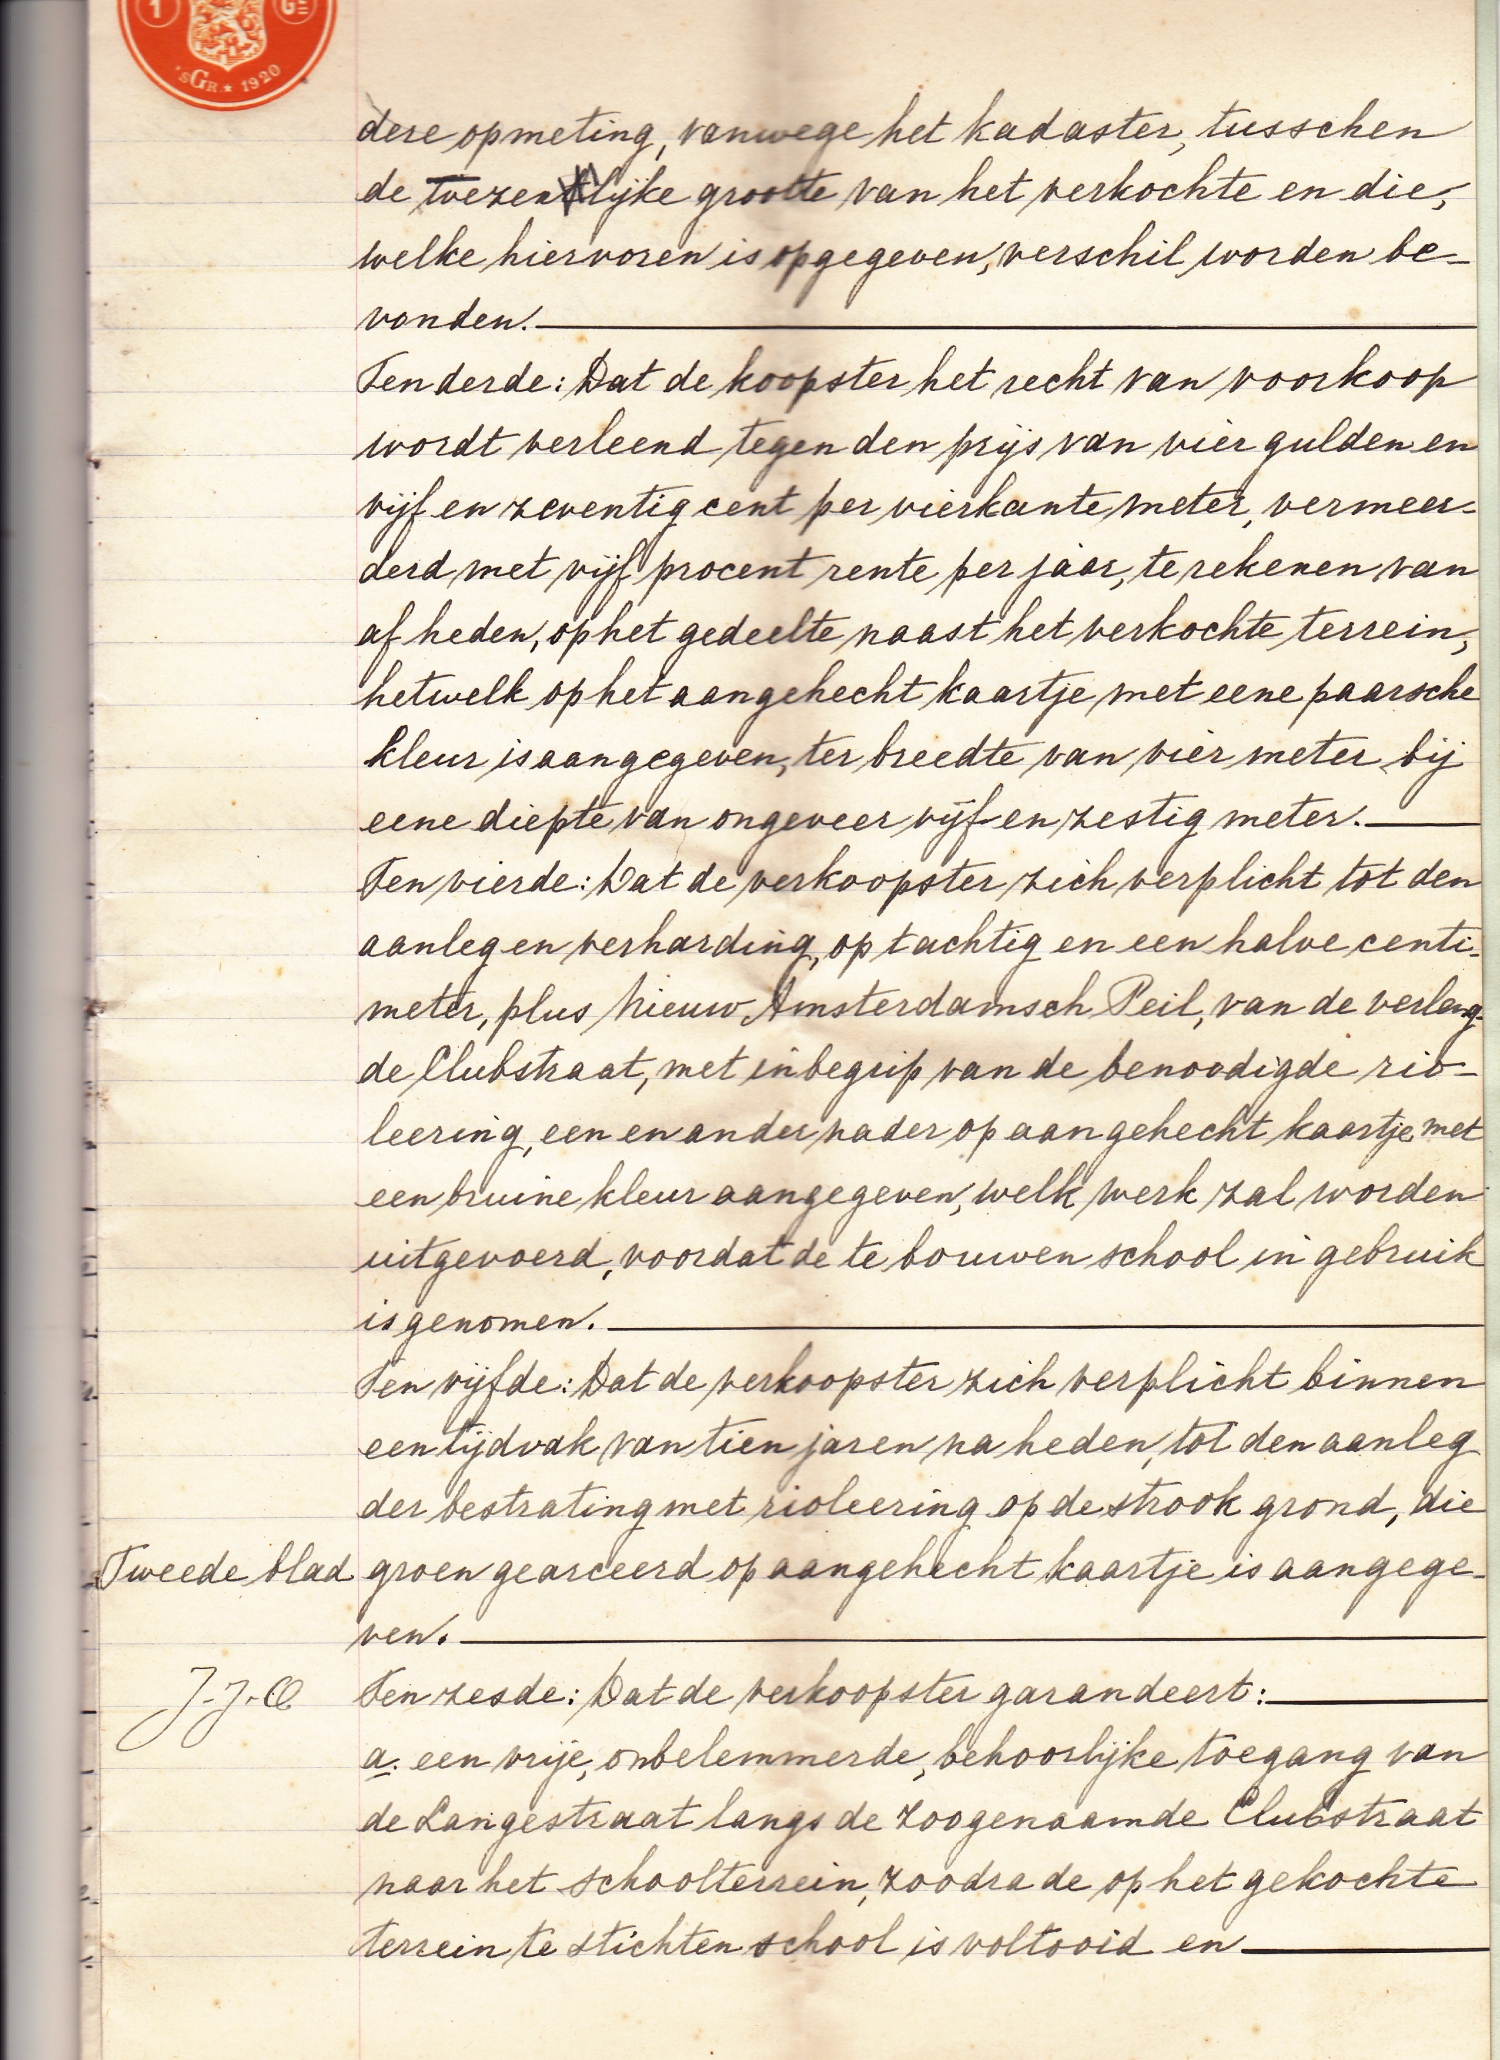 1 G
'sGR. * 1920
dere opmeting, vanwege het kadaster, tusschen
de wezenlijke grootte van het verkochte en die,
welke hiervoren is opgegeven, verschil worden be-
vonden.
Ten derde: Dat de koopster het recht van voorkoop
wordt verleend tegen den prijs van vier gulden en
vijf en zeventig cent per vierkante meter, vermeer-
derd met vijf procent rente per jaar, te rekenen van
af heden, op het gedeelte naast het verkochte terrein,
hetwelk op het aangehecht kaartje met eene paarsche
kleur is aangegeven, ter breedte van vier meter bij
eene diepte van ongeveer vijf en zestig meter.
Ten vierde: Dat de verkoopster zich verplicht tot den
aanleg en verharding, op tachtig en een halve centi-
meter, plus Nieuw Amsterdamsch Peil, van de verleng-
de Clubstraat, met inbegrip van de benoodigde rio-
leering, een en ander nader op aangehecht kaartje met
een bruine kleur aangegeven, welk werk zal worden
uitgevoerd, voordat de te bouwen school in gebruik
is genomen.
Ten vijfde: Dat de verkoopster zich verplicht binnen
een tijdvak van tien jaren na heden, tot den aanleg
der bestrating met rioleering op de strook grond, die
Tweede blad groen gearceerd op aangehecht kaartje is aangege-
ven.
J.J.O. Ten zesde: Dat de verkoopster garandeert:
a. een vrije, onbelemmerde, behoorlijke toegang van
de Langestraat langs de zoogenaamde Clubstraat
naar het schoolterrein, zoodra de op het gekochte
terrein te stichten school is voltooid en